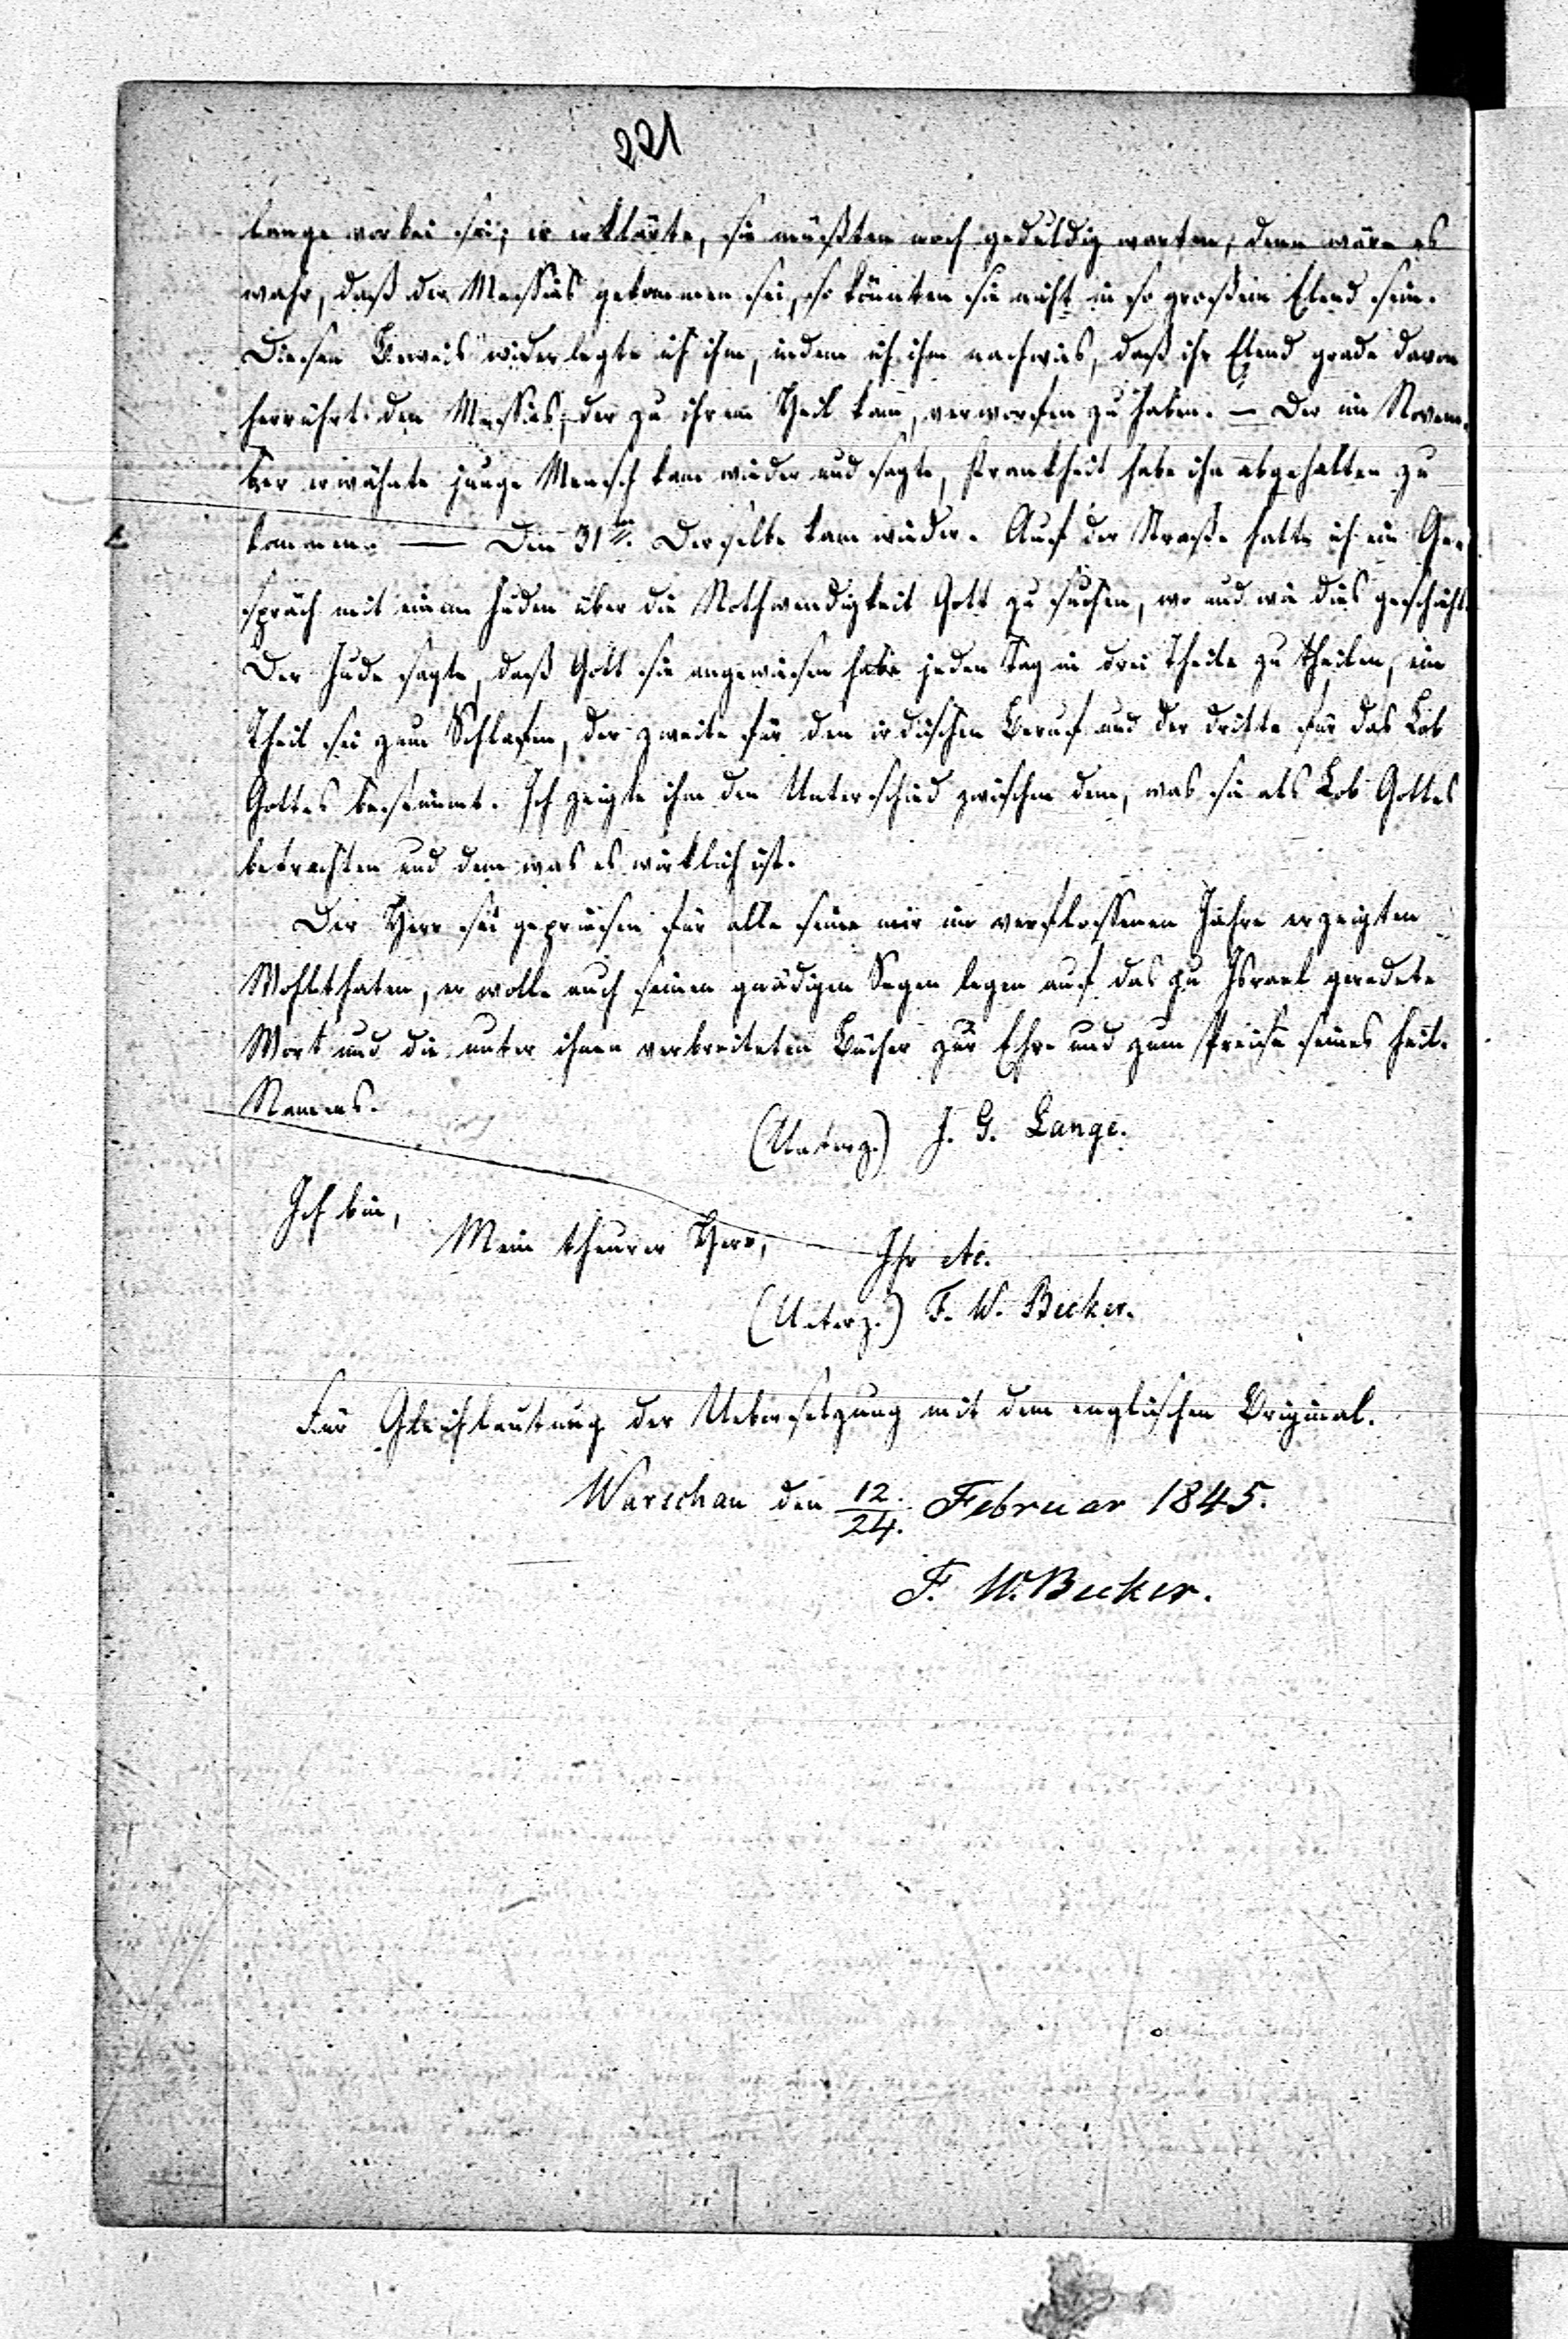 221
lange vorbei sei; er erklärte, sie müßten noch geduldig warten, denn wäre es
wahr, daß der Messias gekommen sei, so könnten sie nicht in so großem Elend sein.
Diesen Beweis widerlegte ich ihm, indem ich ihm nachwies, daß ihr Elend grade davon
herrührt den Messias, der zu ihrem Heil kam, verworfen zu haben. — Der im Novem-
ber erwähnte junge Mensch kam wieder und sagte, Krankheit habe ihn abgehalten zu
kommen. — Den 31ten. Derselbe kam wieder. Auf der Straße hatte ich ein Ge-
spräch mit einem Juden über die Nothwendigkeit Gott zu suchen, wo und wie dies geschieht.
Der Jude sagte, daß Gott sie angewiesen habe jeden Tag in drei Theile zu theilen, ein
Theil sei zum Schlafen, der zweite für den irdischen Beruf und der dritte für das Lob
Gottes bestimmt. Ich zeigte ihm den Unterschied zwischen dem, was sie als Lob Gottes
betrachten und dem was es wirklich ist.
Der Herr sei gepriesen für alle seine mir im verflossenen Jahre erzeigten
Wohlthaten, er wolle auch seinen gnädigen Segen legen auf das zu Israel geredete
Wort und die unter ihnen verbreiteten Bücher zur Ehre und zum Preise seines heil.
Namens.
(Unterz.) J. G. Lange.
Ich bin,
Mein theurer Herr,
Ihr etc.
(Unterz.) F. W. Becker.
Für Gleichlautung der Uebersetzung mit dem englischen Original.
Warschau den 12./24. Februar 1845.
F. W. Becker.